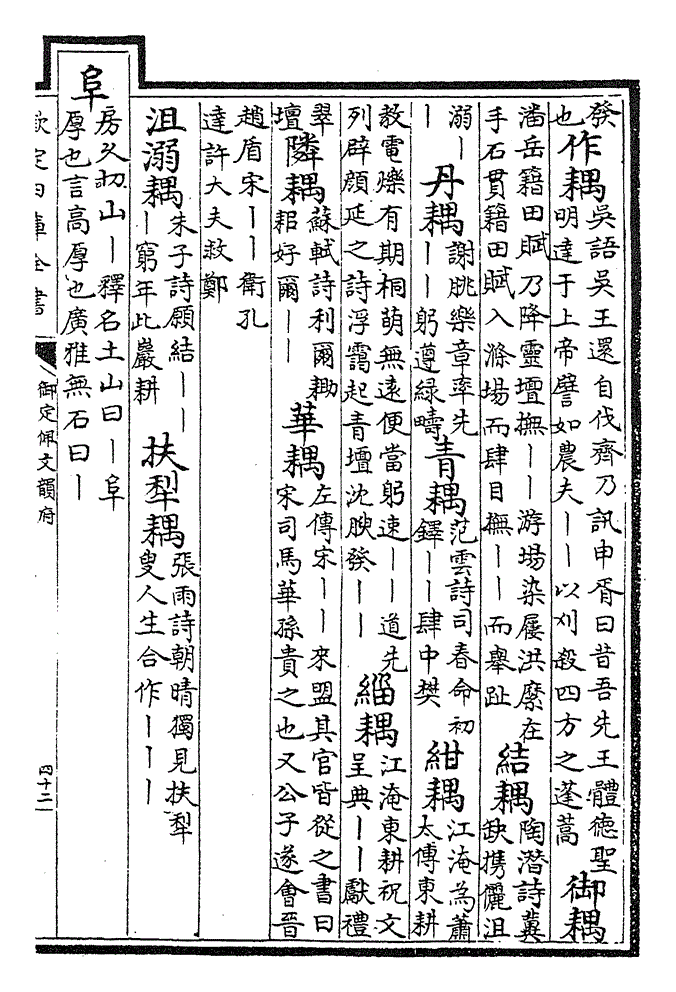 發也作耦吳語吳王還自伐齊乃訊申胥曰昔吾先王體德聖明達于上帝譬如農夫——以刈殺四方之蓬蒿御耦
潘岳籍田賦乃降靈壇撫——游場染屨洪縻在手石貫籍田賦入滌場而肆目撫——而舉趾結耦陶潛詩冀缺攜儷沮
溺——丹耦謝朓樂章率先——躬遵綠疇青耦范雲詩司春命初鐸——肆中樊紺耦江淹為蕭太傅東耕
教電爍有期桐萌無遠便當躬速——道先列辟顏延之詩浮靄起青壇沈腴發——緇耦江淹東耕祝文呈典——獻禮
翠壇隣耦蘇軾詩利爾耡耜好爾——華耦左傳宋——來盟其官皆從之書曰宋司馬華孫貴之也又公子遂會晉
趙盾宋——衛孔達許大夫救鄭
沮溺耦朱子詩願結———窮年此巖耕扶犁耦張雨詩朝晴獨見扶犁叟人生合作———
阜房久切山—釋名土山曰—阜厚也言高厚也廣雅無石曰—
欽定四庫全書
御定佩文韻府
四十二